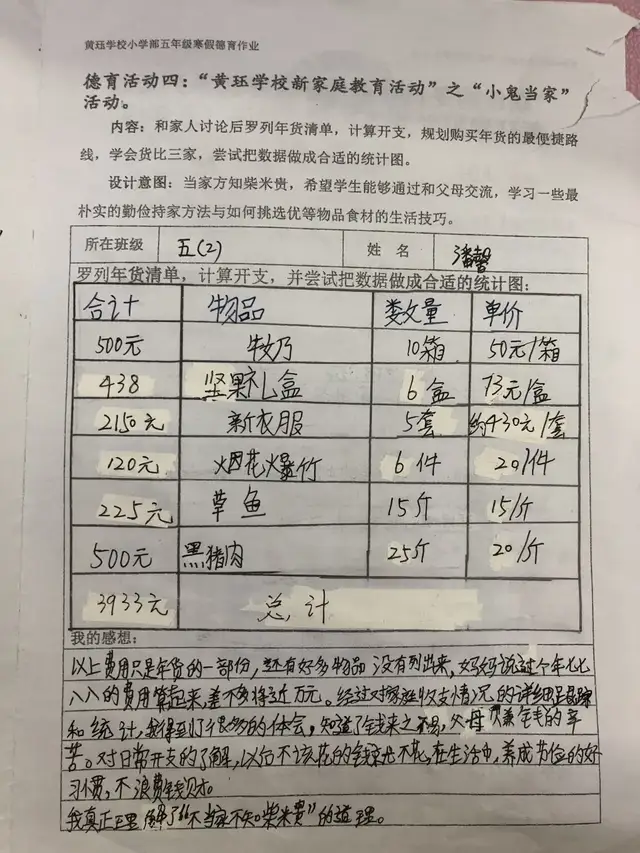 黄珏学校小学部五年级寒假德育作业
德育活动四：“黄珏学校新家庭教育活动”之“小鬼当家”
活动。
内容：和家人讨论后罗列年货清单，计算开支，规划购买年货的最便捷路
线，学会货比三家，尝试把数据做成合适的统计图。
设计意图：当家方知柴米贵，希望学生能够通过和父母交流，学习一些最
朴实的勤俭持家方法与如何挑选优等物品食材的生活技巧。
所在班级 五(2) 姓 名 潘馨
罗列年货清单，计算开支，并尝试把数据做成合适的统计图：
合计 物品 数量 单价
500元 牧乃 10箱 50元/箱
438 坚果礼盒 6盒 73元/盒
2150元 新衣服 5套 约430元/套
120元 烟花爆竹 6件 20/件
225元 草鱼 15斤 15/斤
500元 黑猪肉 25斤 20/斤
3933元 总计
我的感想：
以上费用只是年货的一部份，还有好多物品没有列出来，妈妈说过个年七七
八八的费用算起来，差不多将近万元。经过对家庭收支情况的详细
和统计，我得到了很多的体会，知道了钱来之不易，父母 的辛
苦。对日常开支的了解，以后不该花的钱 不花，在生活中，养成节俭的好
习惯，不浪费钱财。
我真正理解了“不当家不知柴米贵”的道理。